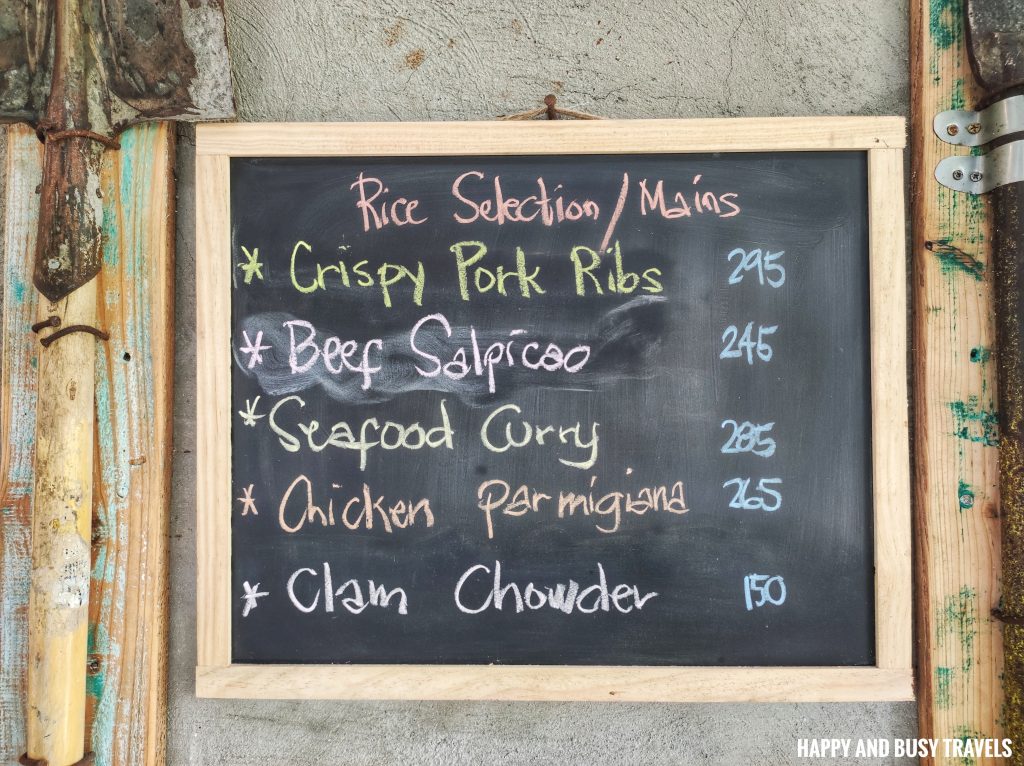 Rice Selection/Mains
* Crispy Pork Ribs 295
* Beef Salpicao 245
* Seafood Curry 285
* Chicken parmigiana 265
* Clam Chowder 150
HAPPY AND BUSY TRAVELS